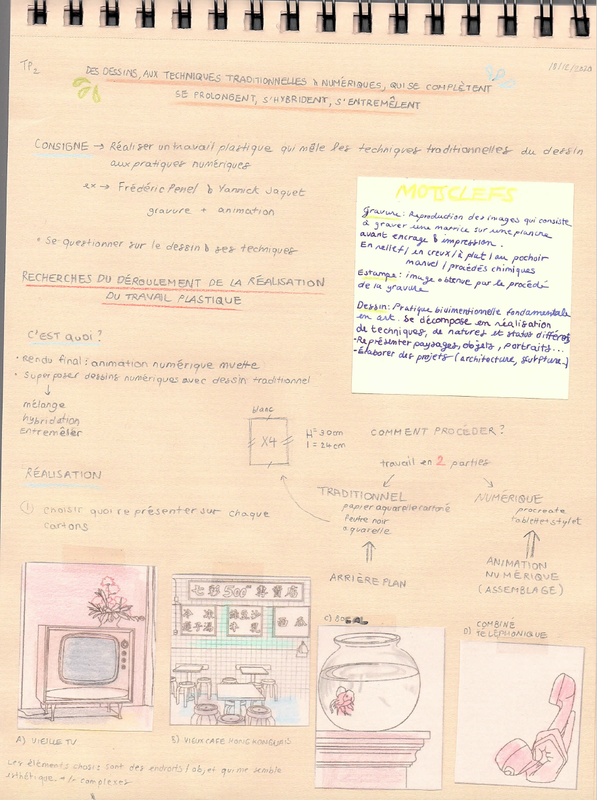 TP2
18/12/2020
DES DESSINS, AUX TECHNIQUES TRADITIONNELLES & NUMÉRIQUES, QUI SE COMPLÈTENT
SE PROLONGENT, S'HYBRIDENT, S'ENTREMÊLENT
CONSIGNE → Réaliser un travail plastique qui mêle les techniques traditionnelles du dessin
aux pratiques numériques
ex → Frédéric Penel & Yannick Jaquet
gravure + animation
* Se questionner sur le dessin & ses techniques
MOTS CLEFS
Gravure: Reproduction des images qui consiste
à graver une matrice sur une planche
avant encrage & impression.
En relief / en creux / à plat / au pochoir
manuel / procédés chimiques
Estampe: image obtenue par le procédé
de la gravure
Dessin: Pratique bidimentionnelle fondamentale
en art. Se décompose en réalisation
de techniques, de natures et status différents
-Représenter paysages, objets, portraits...
-Élaborer des projets (architecture, sculpture..)
RECHERCHES DU DÉROULEMENT DE LA RÉALISATION
DU TRAVAIL PLASTIQUE
C'EST QUOI?
• Rendu final: animation numérique muette
• Superposer dessins numériques avec dessin traditionnel
↓
mélange
hybridation
entremêler
blanc
X4
H= 30cm
l = 24cm
COMMENT PROCÉDER?
travail en 2 parties
TRADITIONNEL
papier aquarelle cartonné
feutre noir
aquarelle
ARRIÈRE PLAN
NUMÉRIQUE
procreate
tablette+stylet
ANIMATION
NUMÉRIQUE
(ASSEMBLAGE)
RÉALISATION
① choisir quoi représenter sur chaque
cartons
七彩 500cc 專賣店
A) VIEILLE TV
B) VIEUX CAFÉ HONG KONGUAIS
C) BOCAL
COMBINÉ
D) TÉLÉPHONIQUE
Les éléments choisis sont des endroits / objet qui me semble
esthétique + complexes